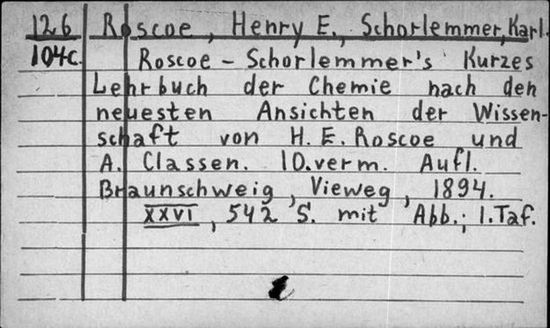 126 Roscoe, Henry E., Schorlemmer, Karl.
104c. Roscoe - Schorlemmer's Kurzes
Lehrbuch der Chemie nach den
neuesten Ansichten der Wissen-
schaft von H. E. Roscoe und
A. Classen. 10. verm. Aufl.
Braunschweig, Vieweg, 1894.
XXVI, 542 S. mit Abb.; 1. Taf.